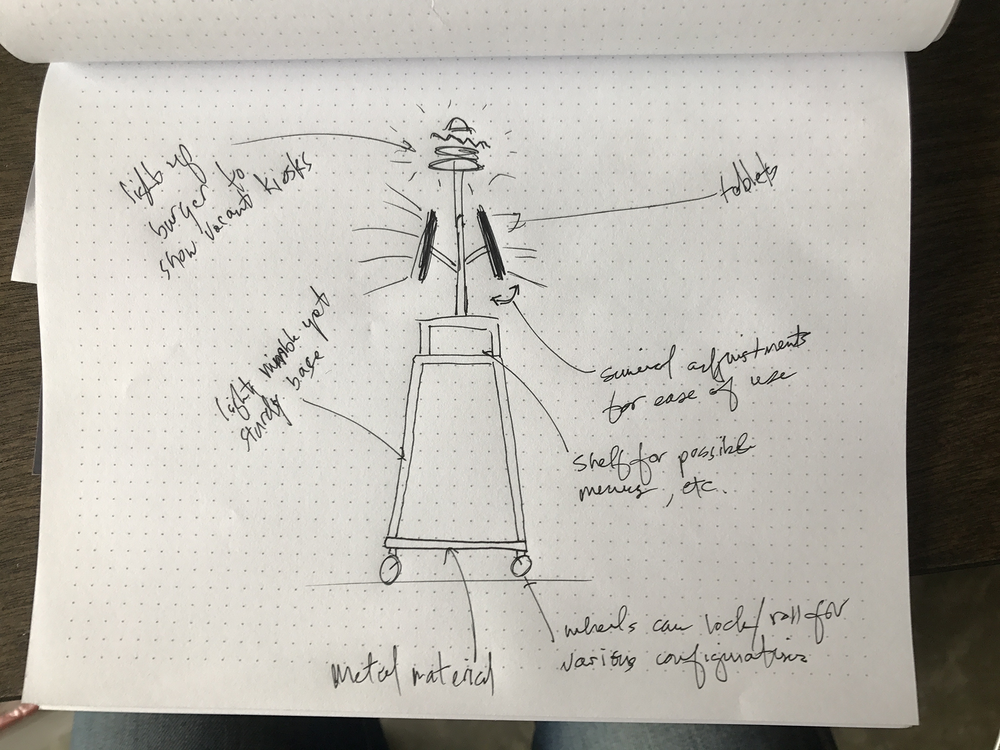 light up
burger to
show vacant kiosks
tablets
light, nimble yet
sturdy base
swivel adjustments
for ease of use
shelf for possible
menus, etc.
wheels can lock/roll for
various configurations
metal material